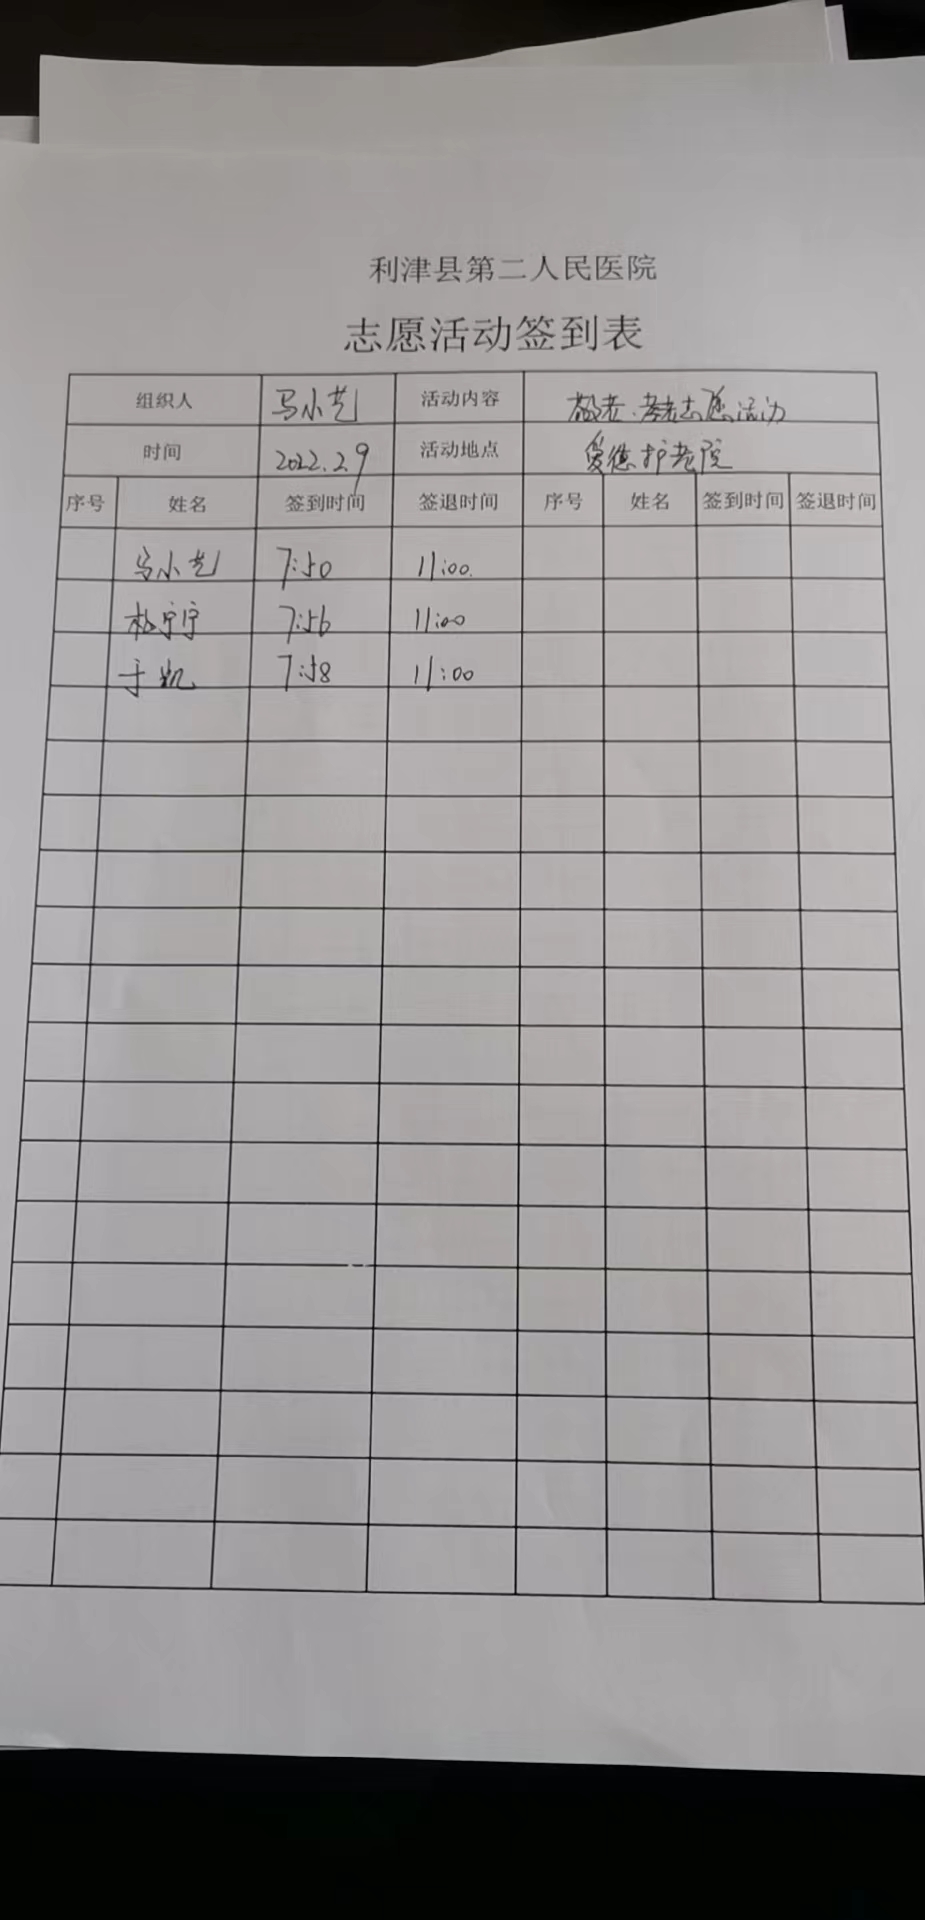 利津县第二人民医院
志愿活动签到表
组织人 马小艺 活动内容 敬老、孝老志愿活动
时间 2022.2.9 活动地点 爱德护老院
序号 姓名 签到时间 签退时间 序号 姓名 签到时间 签退时间
马小艺 7:50 11:00
宁宁 7:56 11:00
于凯 7:58 11:00